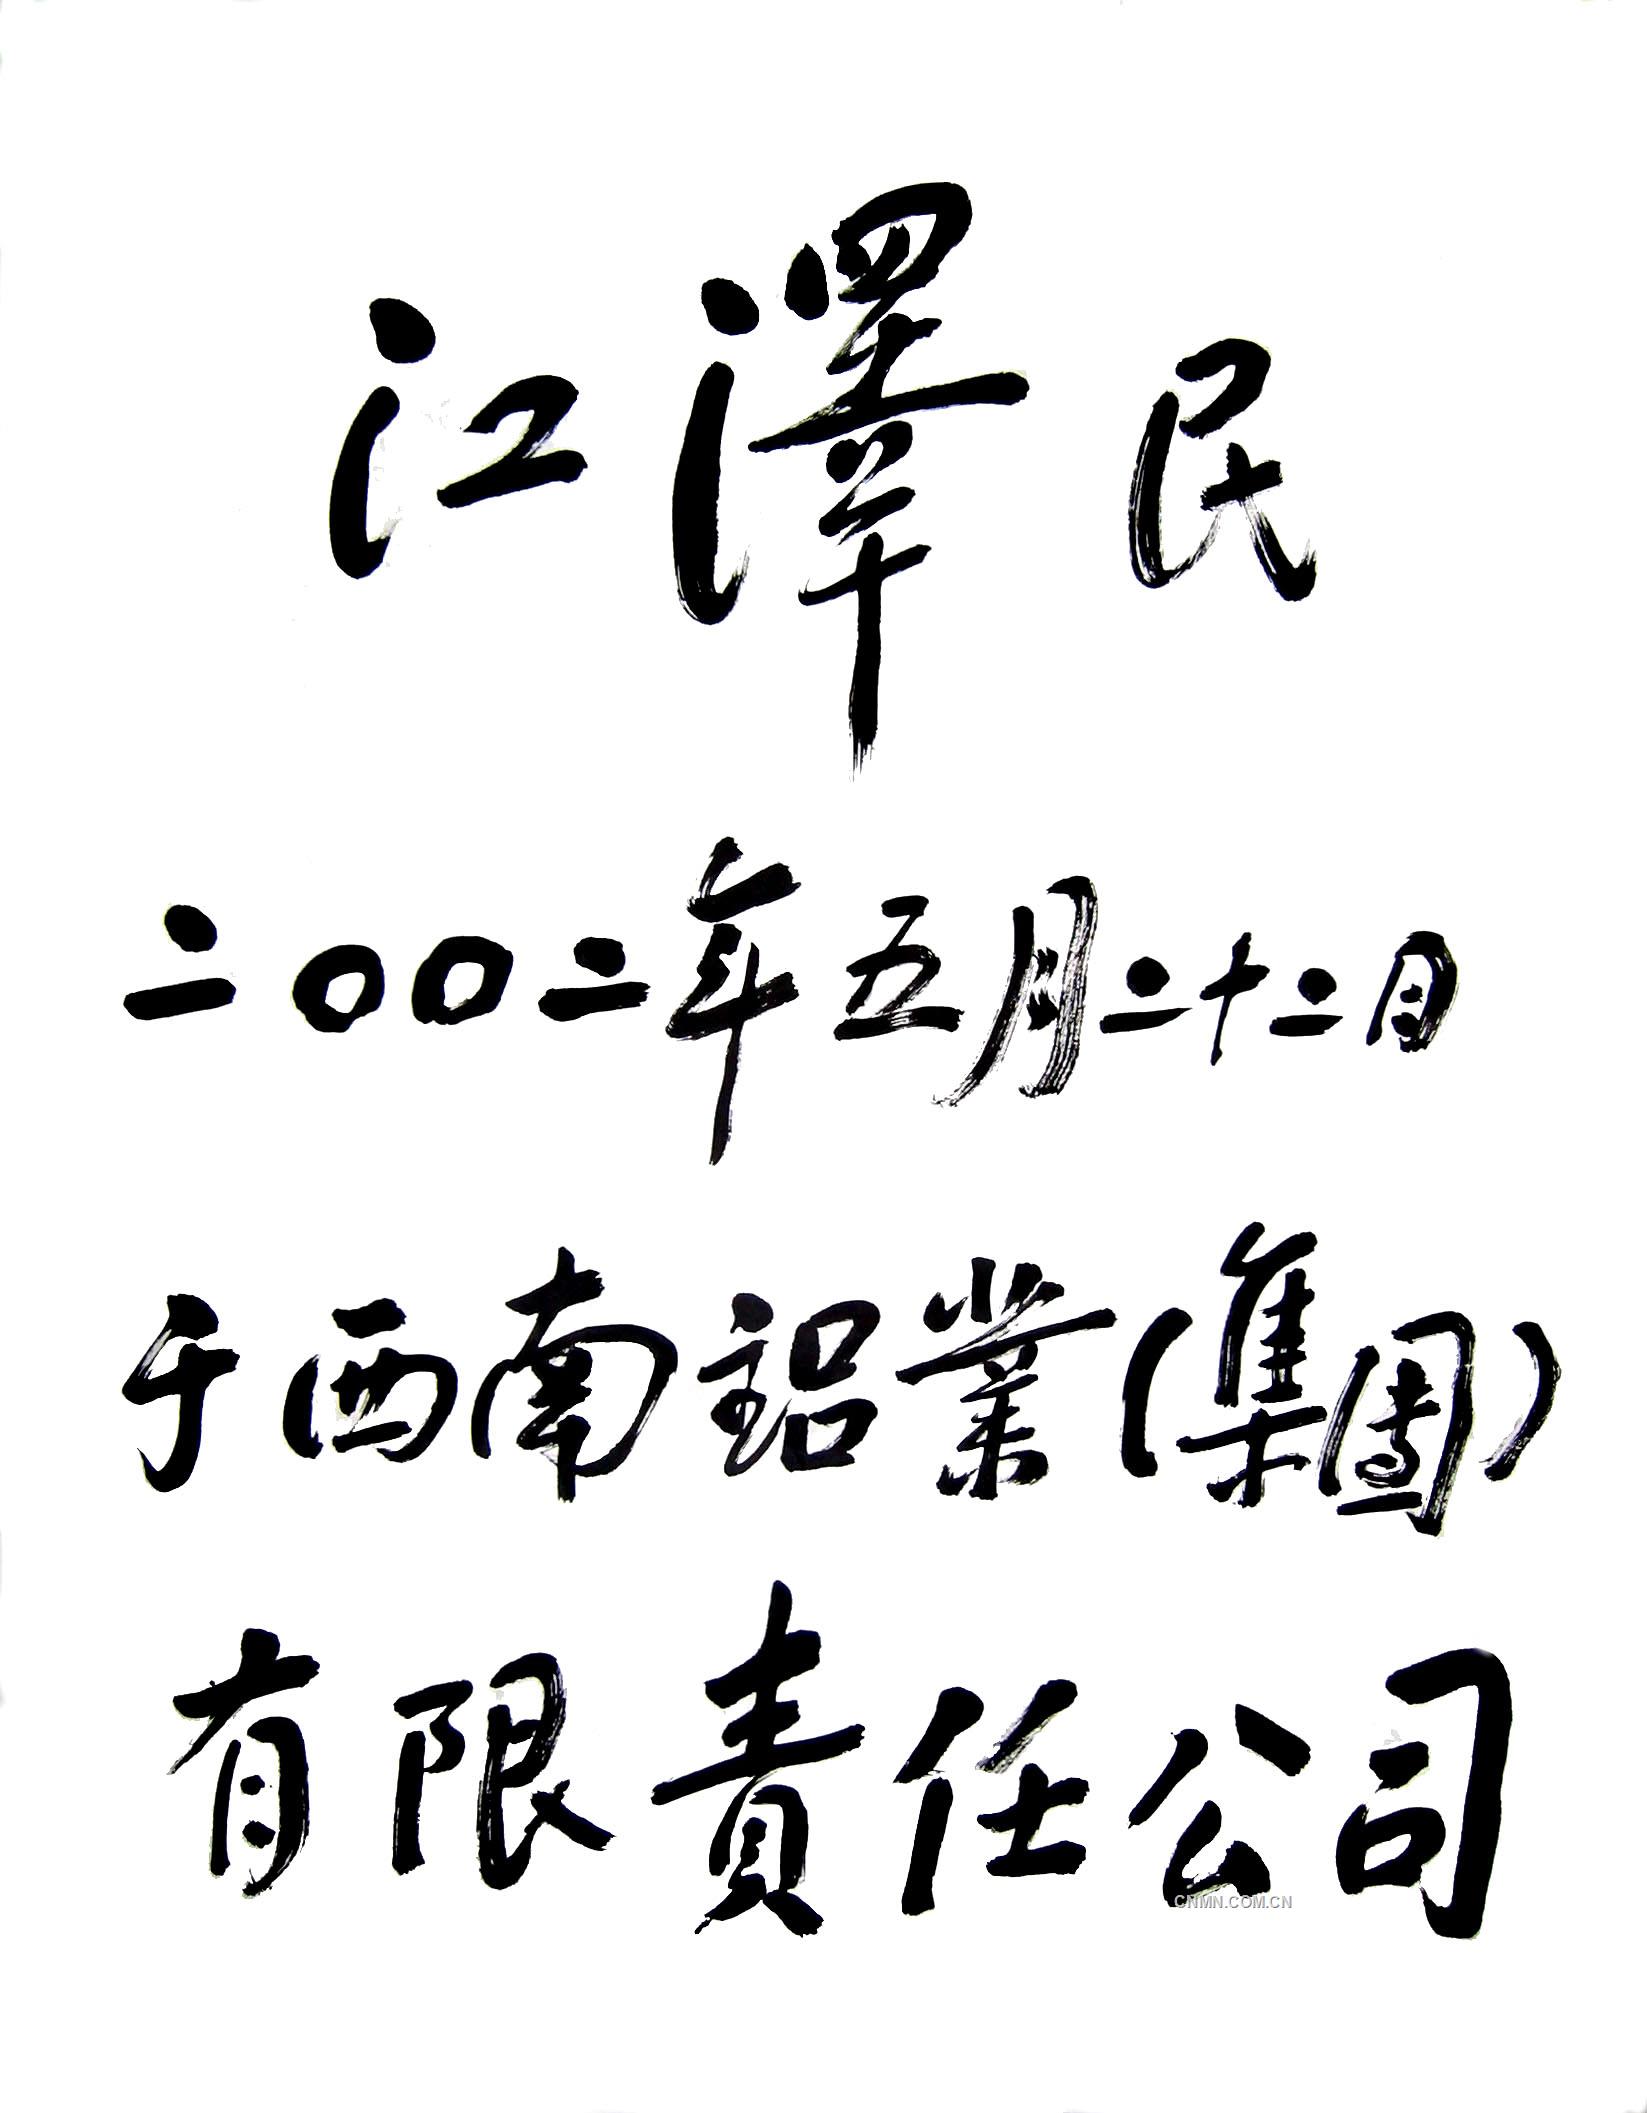 江澤民
二〇〇二年五月二十二日
于西南鋁業(集團)
有限責任公司
CNMN.COM.CN